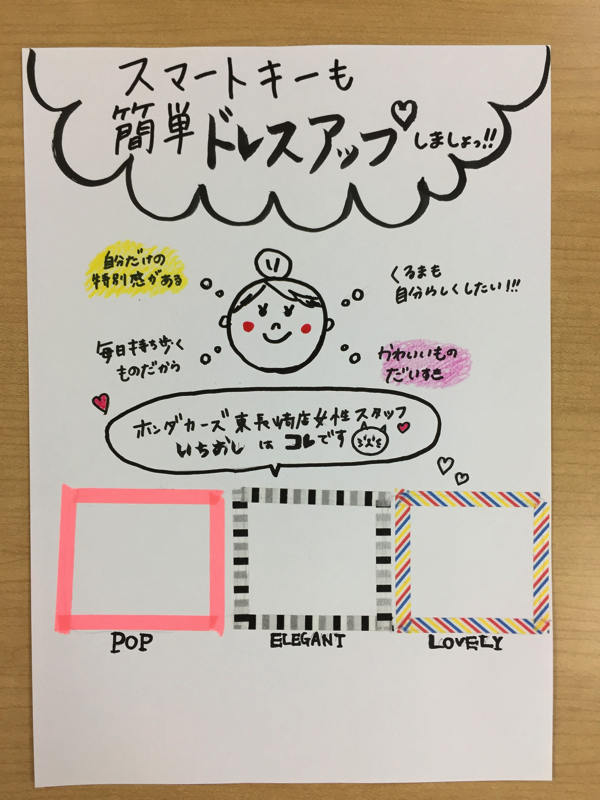 スマートキーも
簡単ドレスアップしましょっ!!
自分だけの
特別感がある
くるまも
自分らしくしたい!!!
毎日持ち歩く
ものだから
かわいいもの
だいすき
ホンダカーズ東長崎店女性スタッフ
いちおしはコレです
POP
ELEGANT
LOVELY